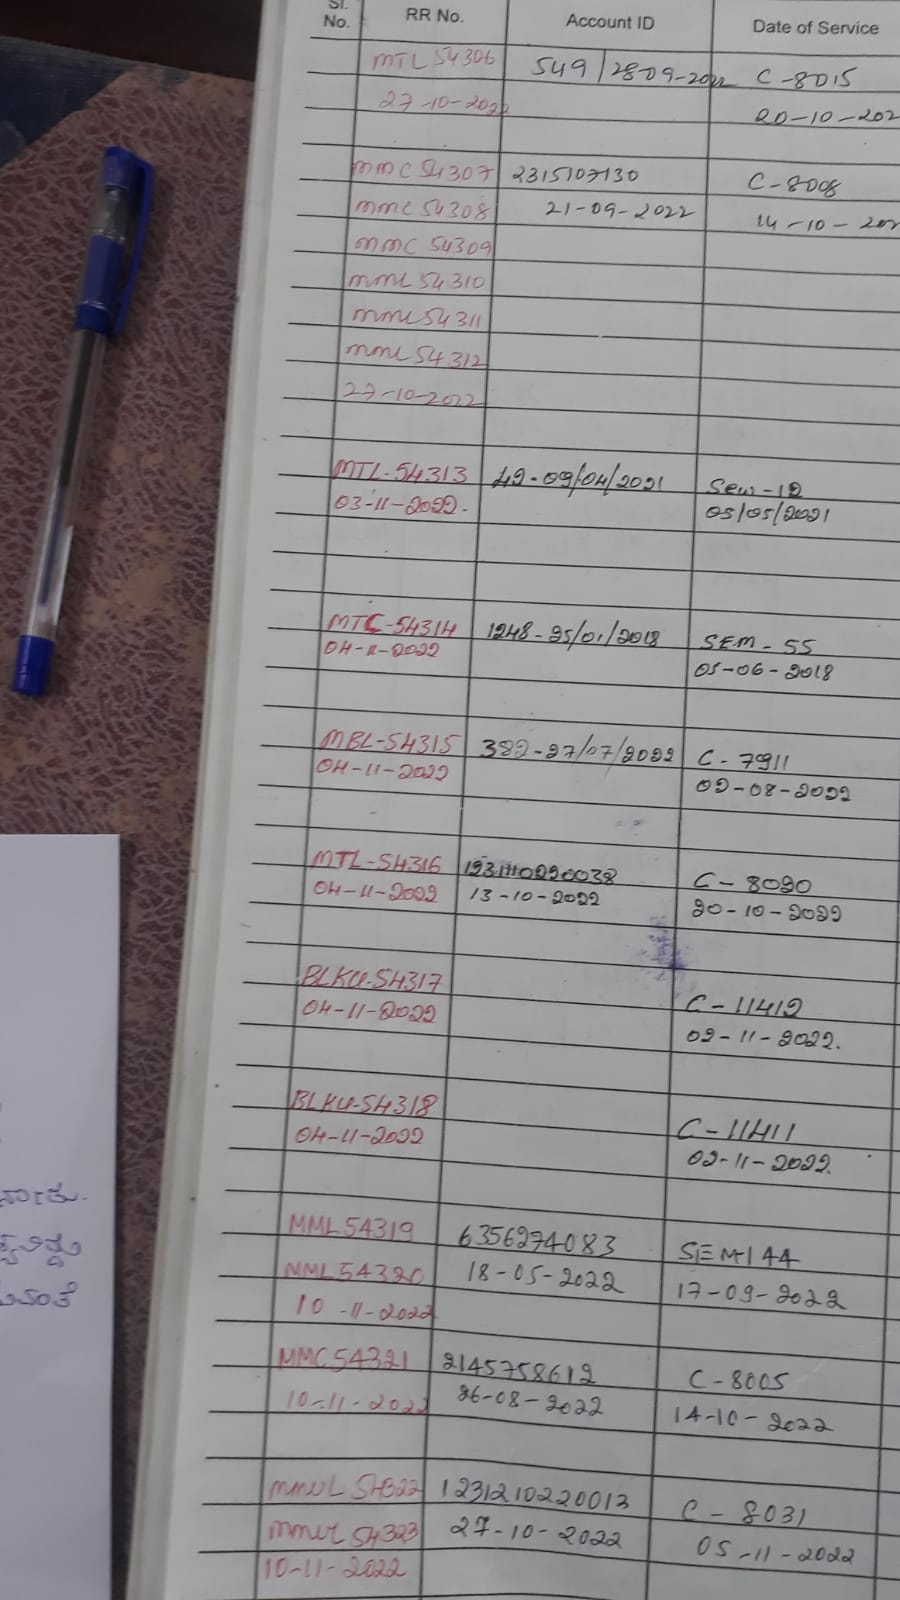 Sl. No. RR No. Account ID Date of Service
MTL 54306 549/28-09-2022 C-8015
27-10-2022 20-10-202
MMC 54307 2315107130 C-8008
MMC 54308 21-09-2022 14-10-202
MMC 54309
MML 54310
MML 54311
MML 54312
27-10-2022
MTL-54313 42-09/04/2021 Sem-12
03-11-2022. 05/05/2021
MTC-54314 1248-25/01/2018 SEM-55
04-11-2022 05-06-2018
MBL-54315 382-27/07/2022 C-7911
04-11-2022 02-08-2022
MTL-54316 1231110220038 C-8020
04-11-2022 13-10-2022 20-10-2022
BLKU-54317 C-11412
04-11-2022 02-11-2022.
BLKU-54318 C-11411
04-11-2022 02-11-2022.
MML54319 6356274083 SEM-144
MML54320 18-05-2022 17-09-2022
10-11-2022
MMC54321 2145758612 C-8005
10-11-2022 26-08-2022 14-10-2022
54322 1231210220013 C-8031
54323 27-10-2022 05-11-2022
10-11-2022